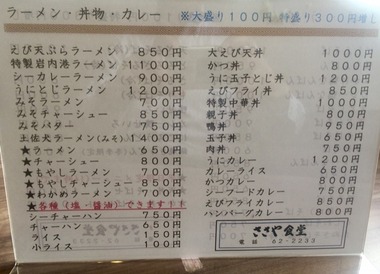 ラーメン・丼物・カレー ※大盛り100円 特盛り300円増し
えび天ぷらラーメン 850円
特製岩内港ラーメン 1000円
シーカレーラーメン 900円
うにとじラーメン 1200円
みそラーメン 700円
みそチャーシュー 850円
みそバター 750円
土佐犬ラーメン(みそ) 1400円
★ラーメン 650円
★チャーシュー 800円
★もやしラーメン 700円
★もやしチャーシュー 850円
★わかめラーメン 700円
★各種(塩・醤油)できます!!
シーチャーハン 750円
チャーハン 750円
ライス 150円
小ライス 100円
大えび天丼 1000円
かつ丼 800円
うに玉子とじ丼 1200円
えびフライ丼 850円
特製中華丼 1000円
親子丼 800円
鴨丼 950円
玉子丼 650円
肉丼 750円
うにカレー 1200円
カレーライス 650円
かつカレー 800円
シーフードカレー 750円
えびフライカレー 850円
ハンバーグカレー 800円
ささや食堂
電話 62-2233